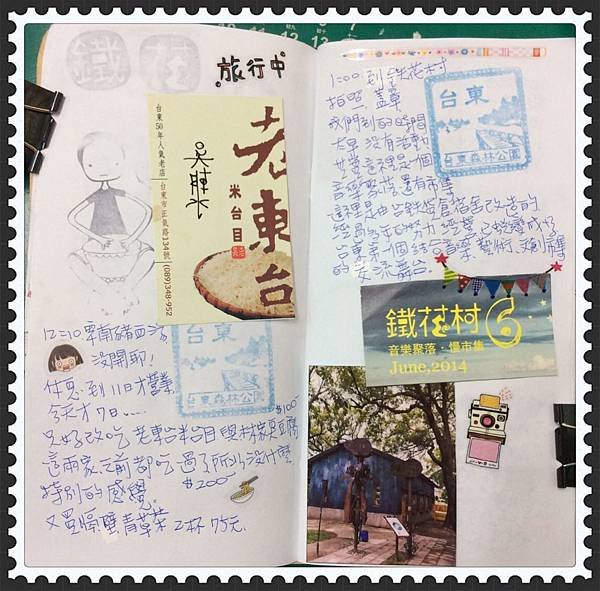 鐵花
旅行中
台東50年人氣老店
吳胜水
老東台
米台目
台東市正氣路134號
(089)348-952
12:10
沒開耶!
休息到11日才營業
今天才7日....
只好改吃老東台米台目與林家臭豆腐
$100
這兩家之前都吃過了所以沒什麼
特別的感覺。
$200
又買隔壁青草茶2杯75元
台東
台東森林公園
1:00 到鐵花村
拍照 蓋章
我們到的時間
太早 沒有活動
音樂聚落 還有市集
台東
台東森林公園
這裡是由台鐵貨倉宿舍改造的
台東一個結合音樂 藝術 文創
的交流舞台。
鐵花村
音樂聚落・慢市集
June,2014
6